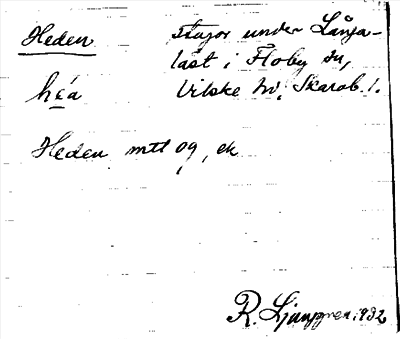 Heden stugor under Långa-
låst i Floby sn,
héa Vilske hd, Skarab. l.
Heden mtl og, ek
R. Ljunggren 1932